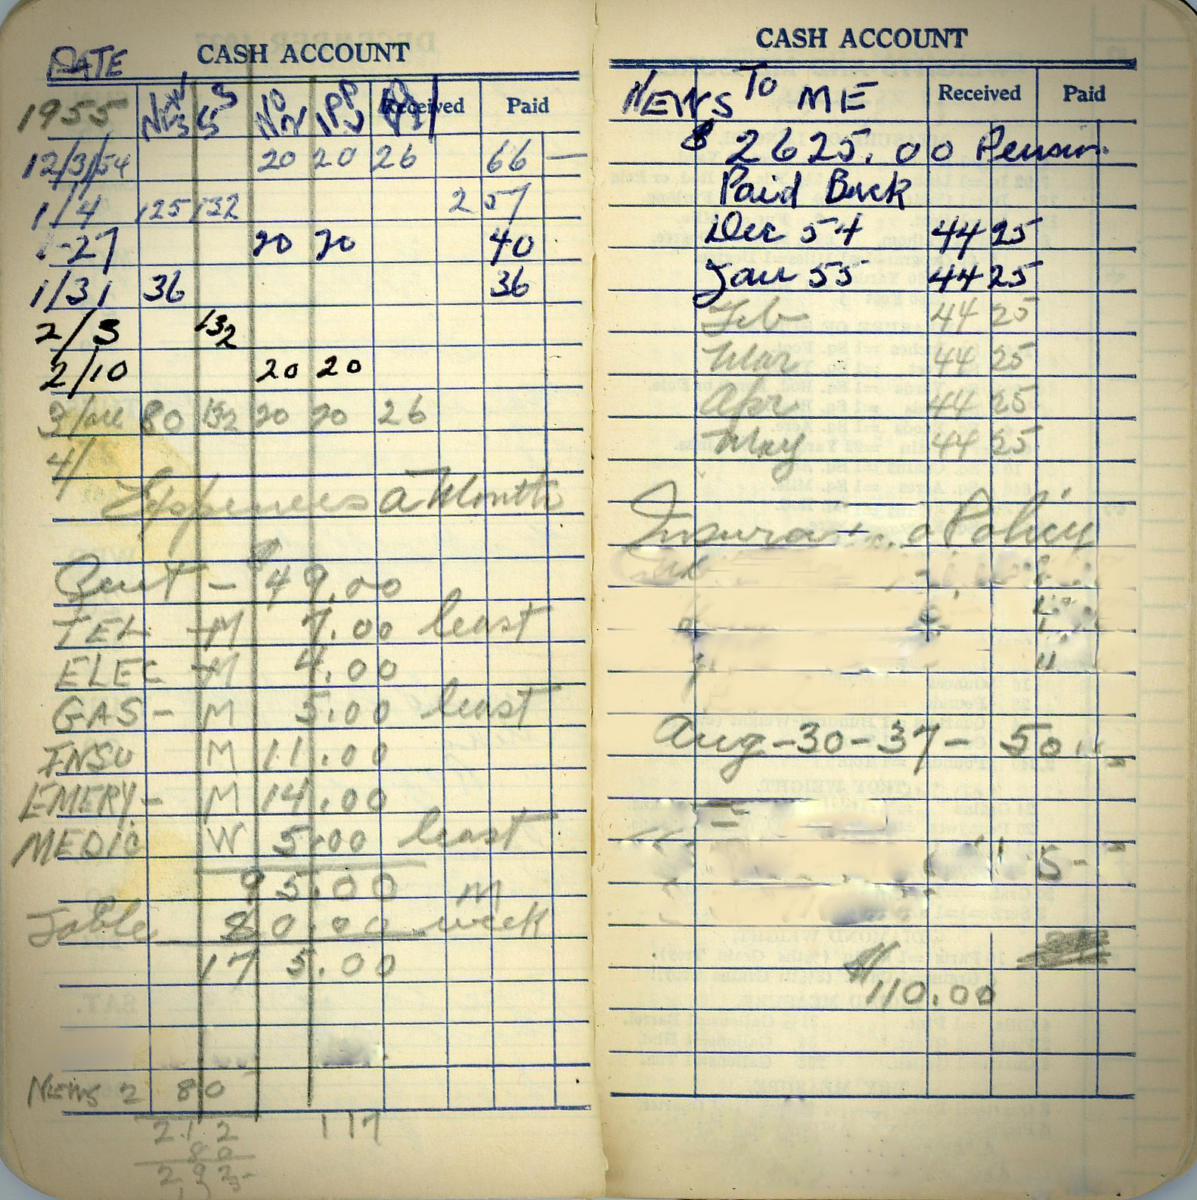 DATE CASH ACCOUNT
1955 NEWS SS NO NJ Received Paid
12/3/54 20 20 26 66 —
1/4 125 132 2 57
1-27 20 20 40
1/31 36 36
2/3 132
2/10 20 20
3/ 80 132 20 20 26
4/
Expenses a Month
Rent - $49.00
TEL - M 7.00 least
ELEC - M 4.00
GAS - M 5.00 least
INSU M 11.00
EMERY - M 14.00
MEDIC W 5.00 least
95.00 M
Table 80.00 week
175.00
NEWS 2 80
212 117
80
292
CASH ACCOUNT
NEWS TO ME Received Paid
$ 2625.00 Pension
Paid Back
Dec 54 44 25
Jan 55 44 25
Feb 44 25
Mar 44 25
Apr 44 25
May 44 25
Insurance Policy
Aug-30-37- 50 "
" 5-"
$110.00